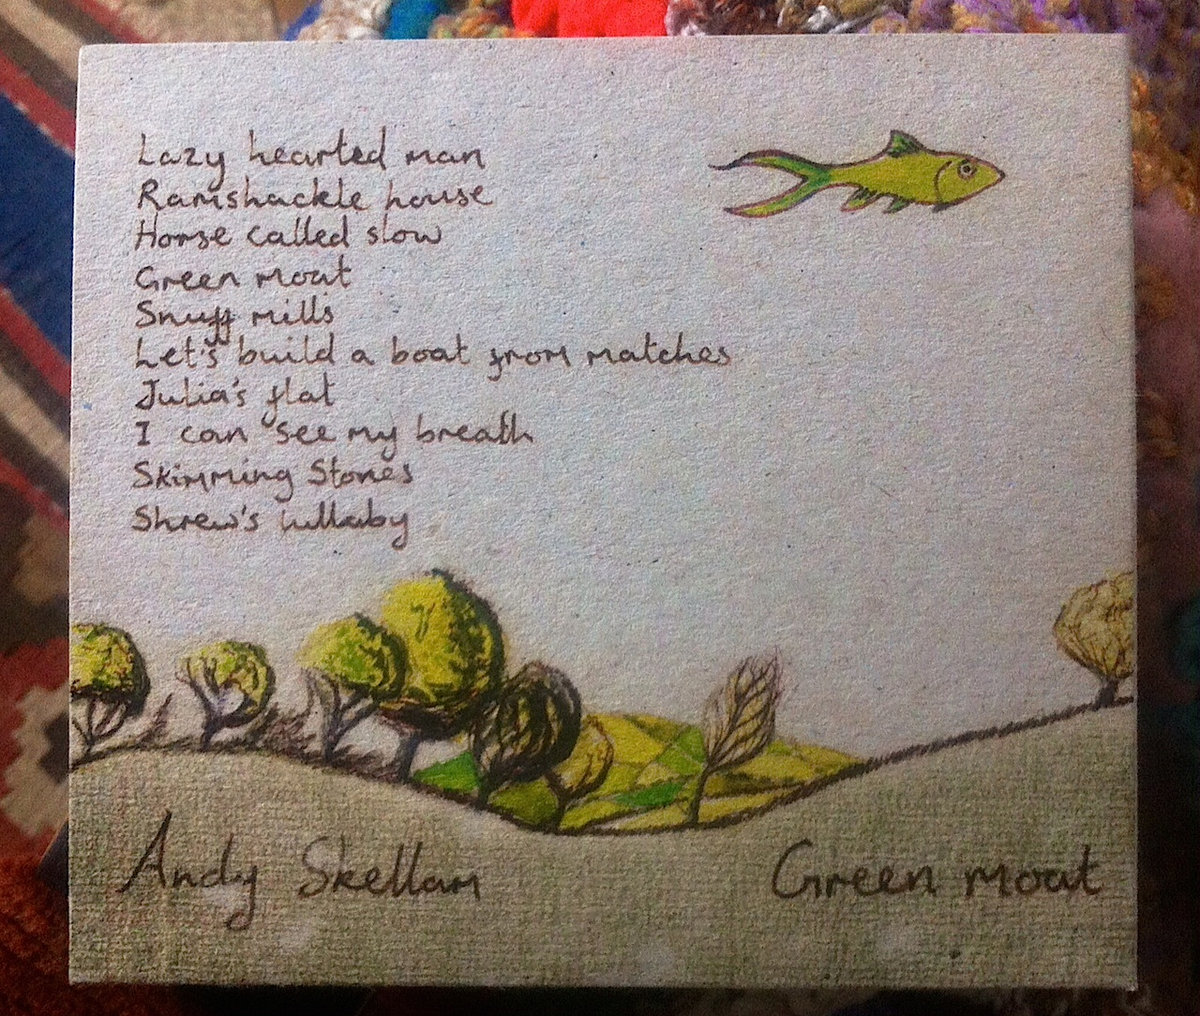 Lazy hearted man
Ramshackle house
Horse called slow
Green moat
Snuff mills
Let's build a boat from matches
Julia's flat
I can see my breath
Skimming Stones
Shrew's lullaby
Andy Skellam
Green moat